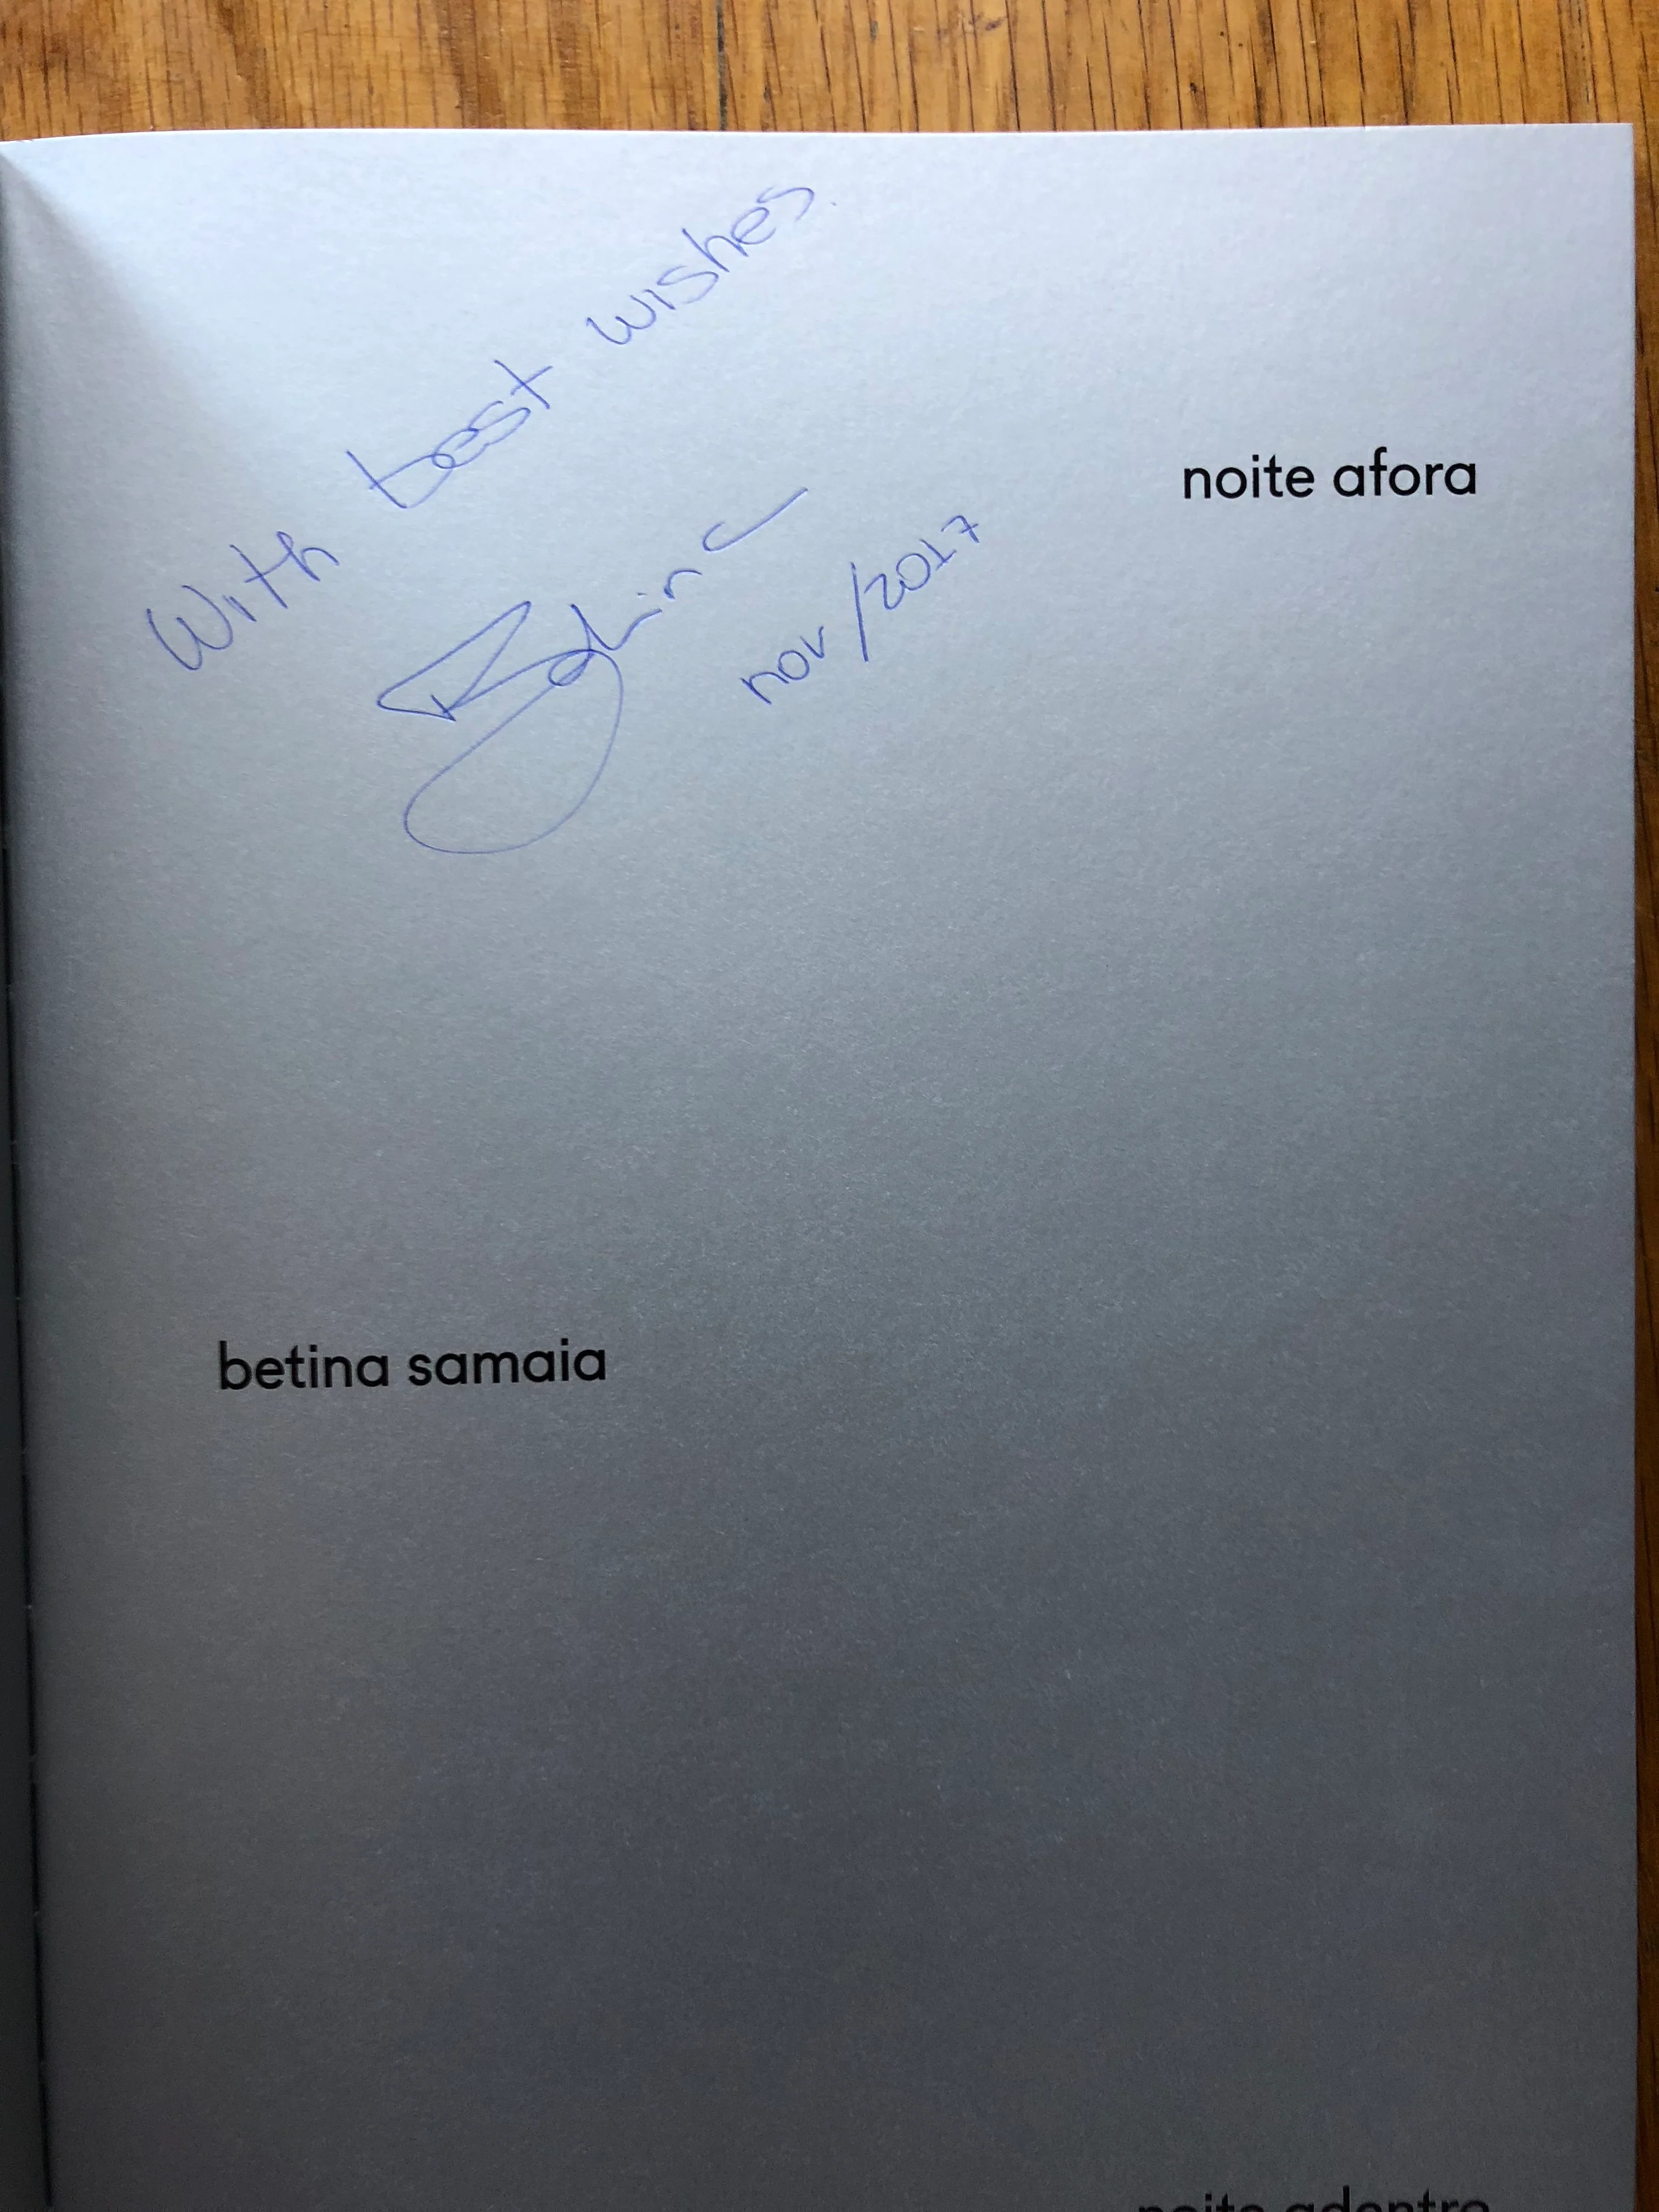 With best wishes.
Betina
nov/2017
noite afora
betina samaia
noite adentro